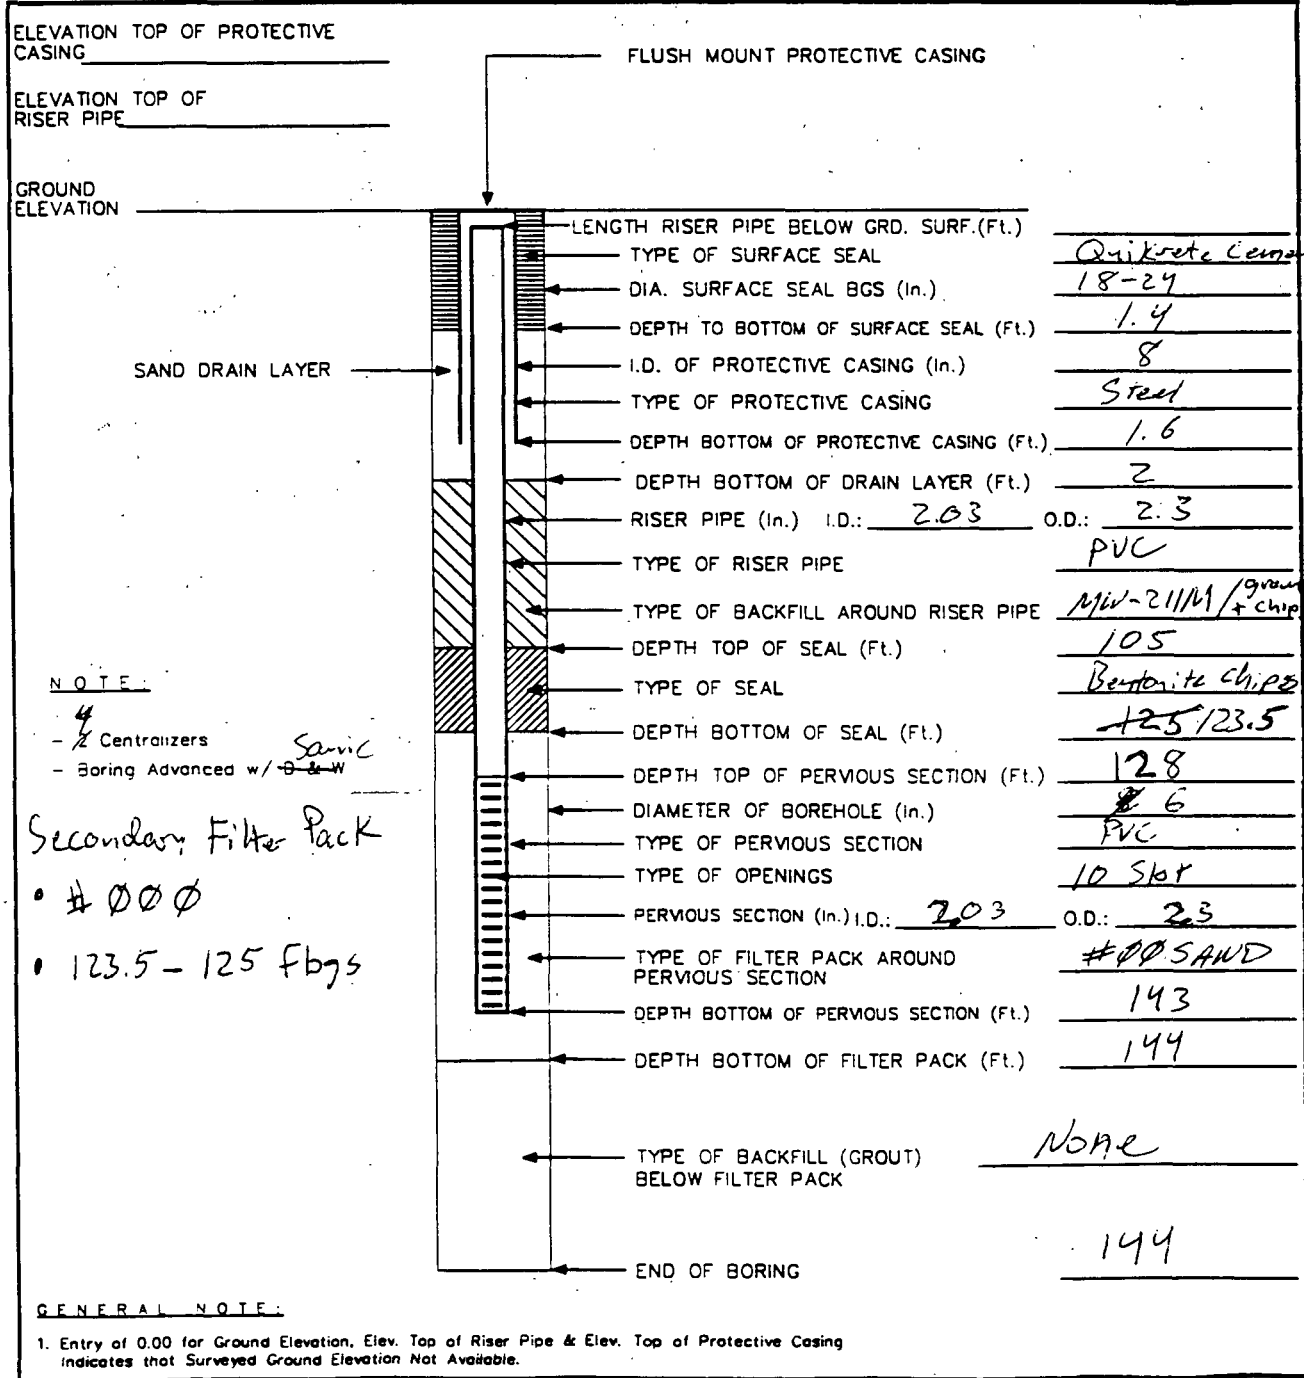 ELEVATION TOP OF PROTECTIVE
CASING
FLUSH MOUNT PROTECTIVE CASING
ELEVATION TOP OF
RISER PIPE
GROUND
ELEVATION
LENGTH RISER PIPE BELOW GRD. SURF.(Ft.)
TYPE OF SURFACE SEAL Quikrete Ceme
DIA. SURFACE SEAL BGS (In.) 18-24
DEPTH TO BOTTOM OF SURFACE SEAL (Ft.) 1.4
SAND DRAIN LAYER
I.D. OF PROTECTIVE CASING (In.) 8
TYPE OF PROTECTIVE CASING Steel
DEPTH BOTTOM OF PROTECTIVE CASING (Ft.) 1.6
DEPTH BOTTOM OF DRAIN LAYER (Ft.) 2
RISER PIPE (In.) I.D.: 2.03 O.D.: 2.3
TYPE OF RISER PIPE PVC
TYPE OF BACKFILL AROUND RISER PIPE MW-211M / grou + chip
DEPTH TOP OF SEAL (Ft.) 105
TYPE OF SEAL Bentonite Chips
DEPTH BOTTOM OF SEAL (Ft.) 125 123.5
DEPTH TOP OF PERVIOUS SECTION (Ft.) 128
DIAMETER OF BOREHOLE (in.) 6
TYPE OF PERVIOUS SECTION PVC
TYPE OF OPENINGS 10 Slot
PERVIOUS SECTION (In.) I.D.: 2.03 O.D.: 2.3
TYPE OF FILTER PACK AROUND
PERVIOUS SECTION #00 SAND
DEPTH BOTTOM OF PERVIOUS SECTION (Ft.) 143
DEPTH BOTTOM OF FILTER PACK (Ft.) 144
TYPE OF BACKFILL (GROUT)
BELOW FILTER PACK None
END OF BORING 144
NOTE:
- 4 Centralizers
- Boring Advanced w/ D & W Sonic
Secondary Filter Pack
• # 000
• 123.5 - 125 fbgs
GENERAL NOTE:
1. Entry of 0.00 for Ground Elevation, Elev. Top of Riser Pipe & Elev. Top of Protective Casing
Indicates that Surveyed Ground Elevation Not Available.